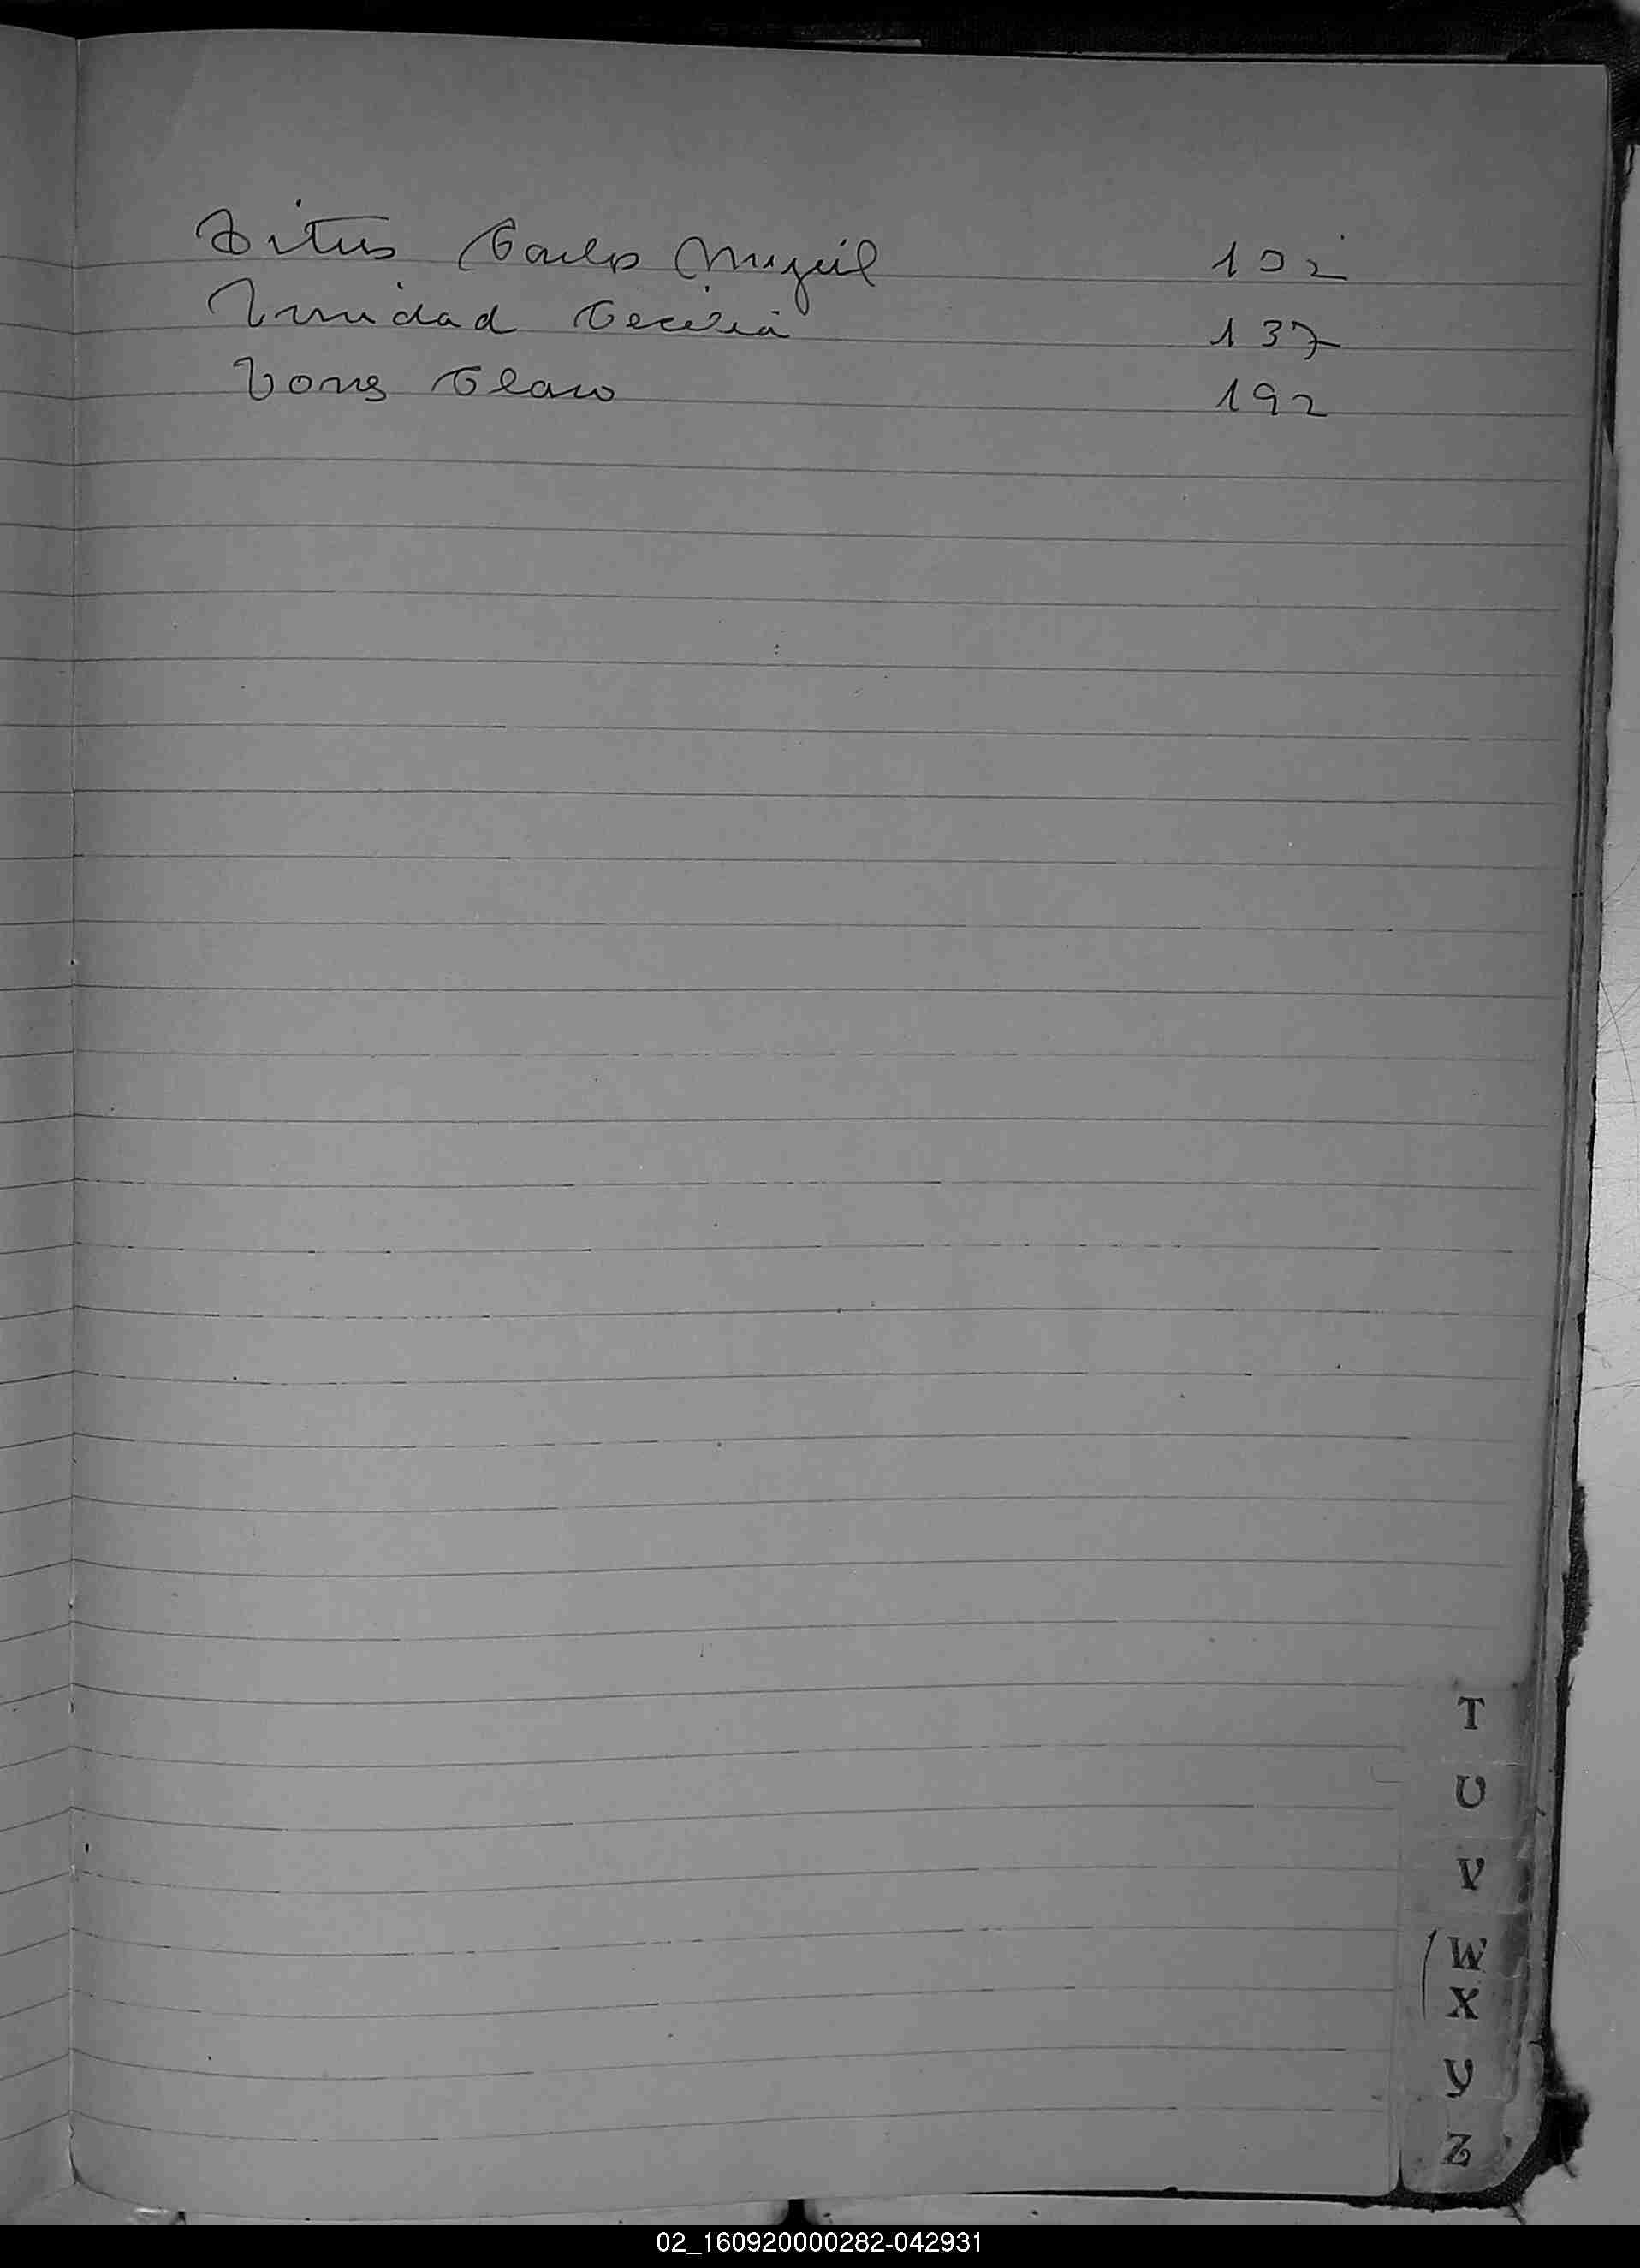 Titus Carlos Miguel 102
Trinidad Cecilia 137
Torres Claro 192
T
U
V
W
X
Y
Z
02_160920000282-042931